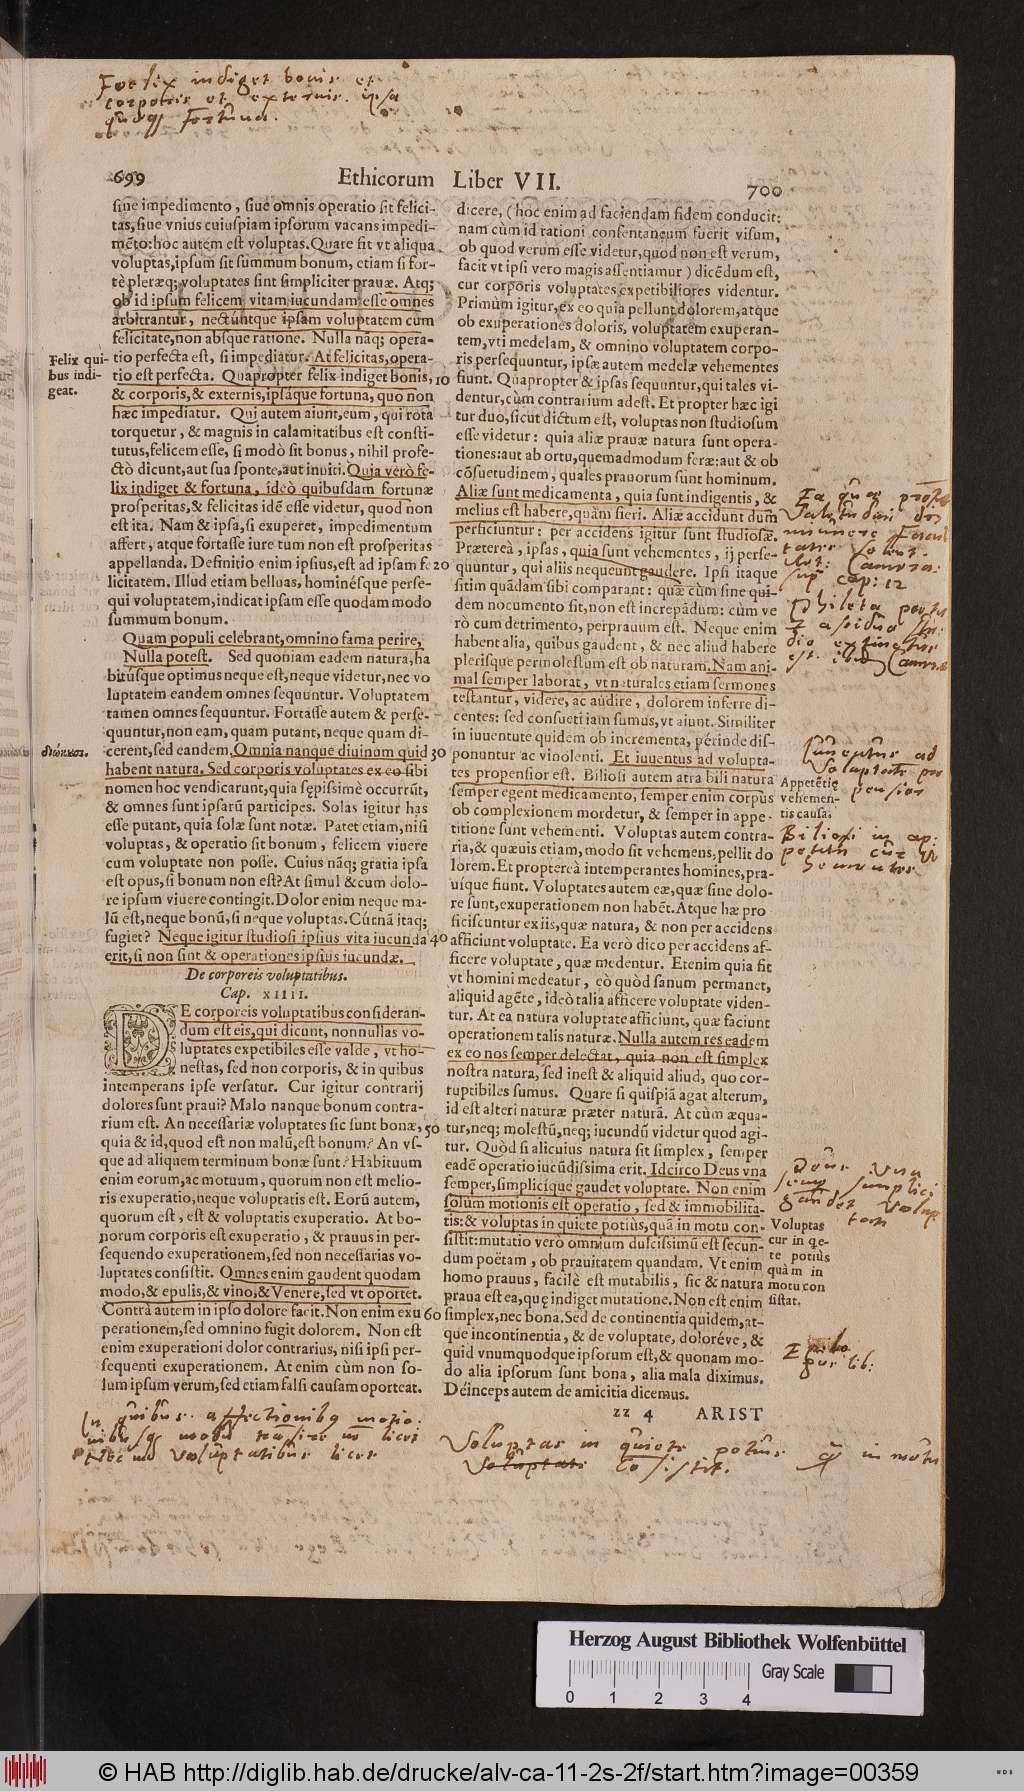 Foelix indiget bonis et
corporis et externis. ipsa
quoque fortuna.
699
Ethicorum Liber VII.
700
siue impedimento, siue omnis operatio sit felici-
tas, siue vnius cuiuspiam ipsorum vacans impedi-
mēto: hoc autem est voluptas. Quare sit vt aliqua
voluptas, ipsum sit summum bonum, etiam si for-
tè pleræq; voluptates sint simpliciter prauæ. Atq;
ob id ipsum felicem vitam iucundam esse omnes
arbitrantur, nectúntque ipsam voluptatem cùm
felicitate, non absque ratione. Nulla nāq; opera-
tio perfecta est, si impediatur. At felicitas, opera-
tio est perfecta. Quapropter felix indiget bonis,
& corporis, & externis, ipsáque fortuna, quo non
hæc impediatur. Qui autem aiunt, eum, qui rota
torquetur, & magnis in calamitatibus est consti-
tutus, felicem esse, si modò sit bonus, nihil profe-
ctò dicunt, aut sua sponte, aut inuiti. Quia verò fe-
lix indiget & fortuna, ideò quibusdam fortunæ
prosperitas, & felicitas idē esse videtur, quod non
est ita. Nam & ipsa, si exuperet, impedimentum
affert, atque fortasse iure tum non est prosperitas
appellanda. Definitio enim ipsius, est ad ipsam fe
licitatem. Illud etiam belluas, hominésque perse-
qui voluptatem, indicat ipsam esse quodam modo
summum bonum.
Quam populi celebrant, omnino fama perire,
Nulla potest. Sed quoniam eadem natura, ha
bitúsque optimus neque est, neque videtur, nec vo
luptatem eandem omnes sequuntur. Voluptatem
tamen omnes sequuntur. Fortasse autem & perse-
quuntur, non eam, quam putant, neque quam di-
cerent, sed eandem. Omnia nanque diuinum quid
habent natura. Sed corporis voluptates ex eo sibi
nomen hoc vendicarunt, quia sępissimè occurrūt,
& omnes sunt ipsarū participes. Solas igitur has
esse putant, quia solæ sunt notæ. Patet etiam, nisi
voluptas, & operatio sit bonum, felicem viuere
cum voluptate non posse. Cuius nāq; gratia ipsa
est opus, si bonum non est? At simul & cum dolo-
re ipsum viuere contingit. Dolor enim neque ma-
lū est, neque bonū, si neque voluptas. Cùrnā itaq;
fugiet? Neque igitur studiosi ipsius vita iucunda
erit, si non sint & operationes ipsius iucundæ.
De corporeis voluptatibus.
Cap. XIIII.
DE corporeis voluptatibus consideran-
dum est eis, qui dicunt, nonnullas vo-
luptates expetibiles esse valde, vt ho-
nestas, sed non corporis, & in quibus
intemperans ipse versatur. Cur igitur contrarij
dolores sunt praui? Malo nanque bonum contra-
rium est. An necessariæ voluptates sic sunt bonæ,
quia & id, quod est non malū, est bonum? An vs-
que ad aliquem terminum bonæ sunt? Habituum
enim eorum, ac motuum, quorum non est melio-
ris exuperatio, neque voluptatis est. Eorū autem,
quorum est, est & voluptatis exuperatio. At bo-
norum corporis est exuperatio, & prauus in per-
sequendo exuperationem, sed non necessarias vo-
luptates consistit. Omnes enim gaudent quodam
modo, & epulis, & vino, & Venere, sed vt oportet.
Contrà autem in ipso dolore facit. Non enim exu
perationem, sed omnino fugit dolorem. Non est
enim exuperationi dolor contrarius, nisi ipsi per-
sequenti exuperationem. At enim cùm non so-
lum ipsum verum, sed etiam falsi causam oporteat.
Felix qui-
bus indi-
geat.
διώκουσι.
10
20
30
40
50
60
dicere, (hoc enim ad faciendam fidem conducit:
nam cùm id rationi consentaneum fuerit visum,
ob quod verum esse videtur, quod non est verum,
facit vt ipsi vero magis assentiamur) dicēdum est,
cur corporis voluptates expetibiliores videntur.
Primùm igitur, ex eo quia pellunt dolorem, atque
ob exuperationes doloris, voluptatem exuperan-
tem, vti medelam, & omnino voluptatem corpo-
ris persequuntur, ipsæ autem medelæ vehementes
fiunt. Quapropter & ipsas sequuntur, qui tales vi-
dentur, cùm contrarium adest. Et propter hæc igi
tur duo, sicut dictum est, voluptas non studiosum
esse videtur: quia aliæ prauæ natura sunt opera-
tiones: aut ab ortu, quemadmodum feræ: aut & ob
cōsuetudinem, quales prauorum sunt hominum.
Aliæ sunt medicamenta, quia sunt indigentis, &
melius est habere, quàm fieri. Aliæ accidunt dum
perficiuntur: per accidens igitur sunt studiosæ.
Prætereà, ipsas, quia sunt vehementes, ij perse-
quuntur, qui aliis nequeunt gaudere. Ipsi itaque
sitim quādam sibi comparant: quæ cùm sine qui-
dem nocumento sit, non est increpādum: cùm ve
rò cum detrimento, perprauum est. Neque enim
habent alia, quibus gaudent, & nec aliud habere
plerisque permolestum est ob naturam. Nam ani-
mal semper laborat, vt naturales etiam sermones
testantur, videre, ac audire, dolorem inferre di-
centes: sed consueti iam sumus, vt aiunt. Similiter
in iuuentute quidem ob incrementa, périnde dis-
ponuntur ac vinolenti. Et iuuentus ad volupta-
tes propensior est. Biliosi autem atra bili natura
semper egent medicamento, semper enim corpus
ob complexionem mordetur, & semper in appe-
titione sunt vehementi. Voluptas autem contra-
ria, & quæuis etiam, modo sit vehemens, pellit do
lorem. Et proptereà intemperantes homines, pra-
uíque fiunt. Voluptates autem eæ, quæ sine dolo-
re sunt, exuperationem non habēt. Atque hæ pro
ficiscuntur ex iis, quæ natura, & non per accidens
afficiunt voluptate. Ea verò dico per accidens af-
ficere voluptate, quæ medentur. Etenim quia fit
vt homini medeatur, eò quòd sanum permanet,
aliquid agēte, ideò talia afficere voluptate viden-
tur. At ea natura voluptate afficiunt, quæ faciunt
operationem talis naturæ. Nulla autem res eadem
ex eo nos semper delectat, quia non est simplex
nostra natura, sed inest & aliquid aliud, quo cor-
ruptibiles sumus. Quare si quispiā agat alterum,
id est alteri naturæ præter naturā. At cùm æqua-
tur, neq; molestū, neq; iucundū videtur quod agi-
tur. Quòd si alicuius natura sit simplex, semper
eadē operatio iucūdissima erit. Idcirco Deus vna
semper, simplicíque gaudet voluptate. Non enim
solum motionis est operatio, sed & immobilita-
tis: & voluptas in quiete potiùs, quā in motu con-
sistit: mutatio verò omnium dulcissimū est secun-
dum poëtam, ob prauitatem quandam. Vt enim
homo prauus, facilè est mutabilis, sic & natura
praua est ea, quę indiget mutatione. Non est enim
simplex, nec bona. Sed de continentia quidem, at-
que incontinentia, & de voluptate, doloréve, &
quid vnumquodque ipsorum est, & quonam mo-
do alia ipsorum sunt bona, alia mala diximus.
Déinceps autem de amicitia dicemus.
zz 4 ARIST
Ea quæ
cap: 12
Phileta
Iuuentus ad
voluptates pro
pensior
Appetētię
vehemen-
tis causa.
Biliosi in ap-
petitu
vehementes
Deus una
semp simplici
gaudet volup
tate
Voluptas
cur in qe-
te potiùs
quàm in
motu con
sistat.
lib:
In quibus affectionibus motio-
nibusq licet
nec in voluptatibus licet
Voluptas in quiete potius quam in motu
cōsistit.
Herzog August Bibliothek Wolfenbüttel
Gray Scale
0 1 2 3 4
© HAB http://diglib.hab.de/drucke/alv-ca-11-2s-2f/start.htm?image=00359